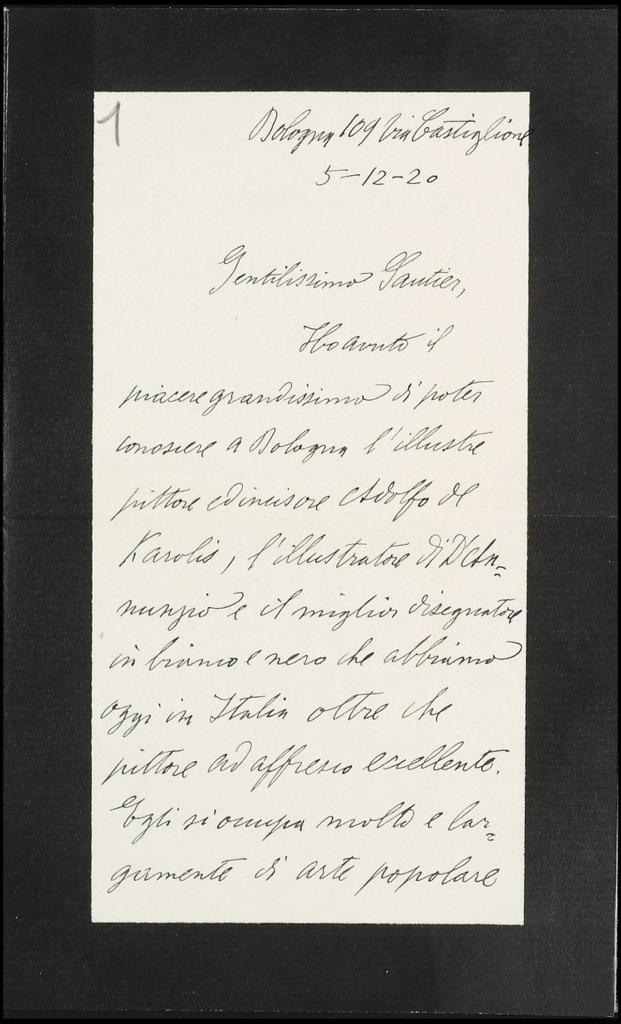 1
Bologna 109 Via Castiglione
5-12-20
Gentilissimo Gautier,
Ho avuto il
piacere grandissimo di poter
conoscere a Bologna l'illustre
pittore ed incisore Adolfo de
Karolis, l'illustratore di D'An=
nunzio e il miglior disegnatore
in bianco e nero che abbiamo
oggi in Italia oltre che
pittore ad affresco eccellente.
Egli si occupa molto e lar=
gamente di arte popolare